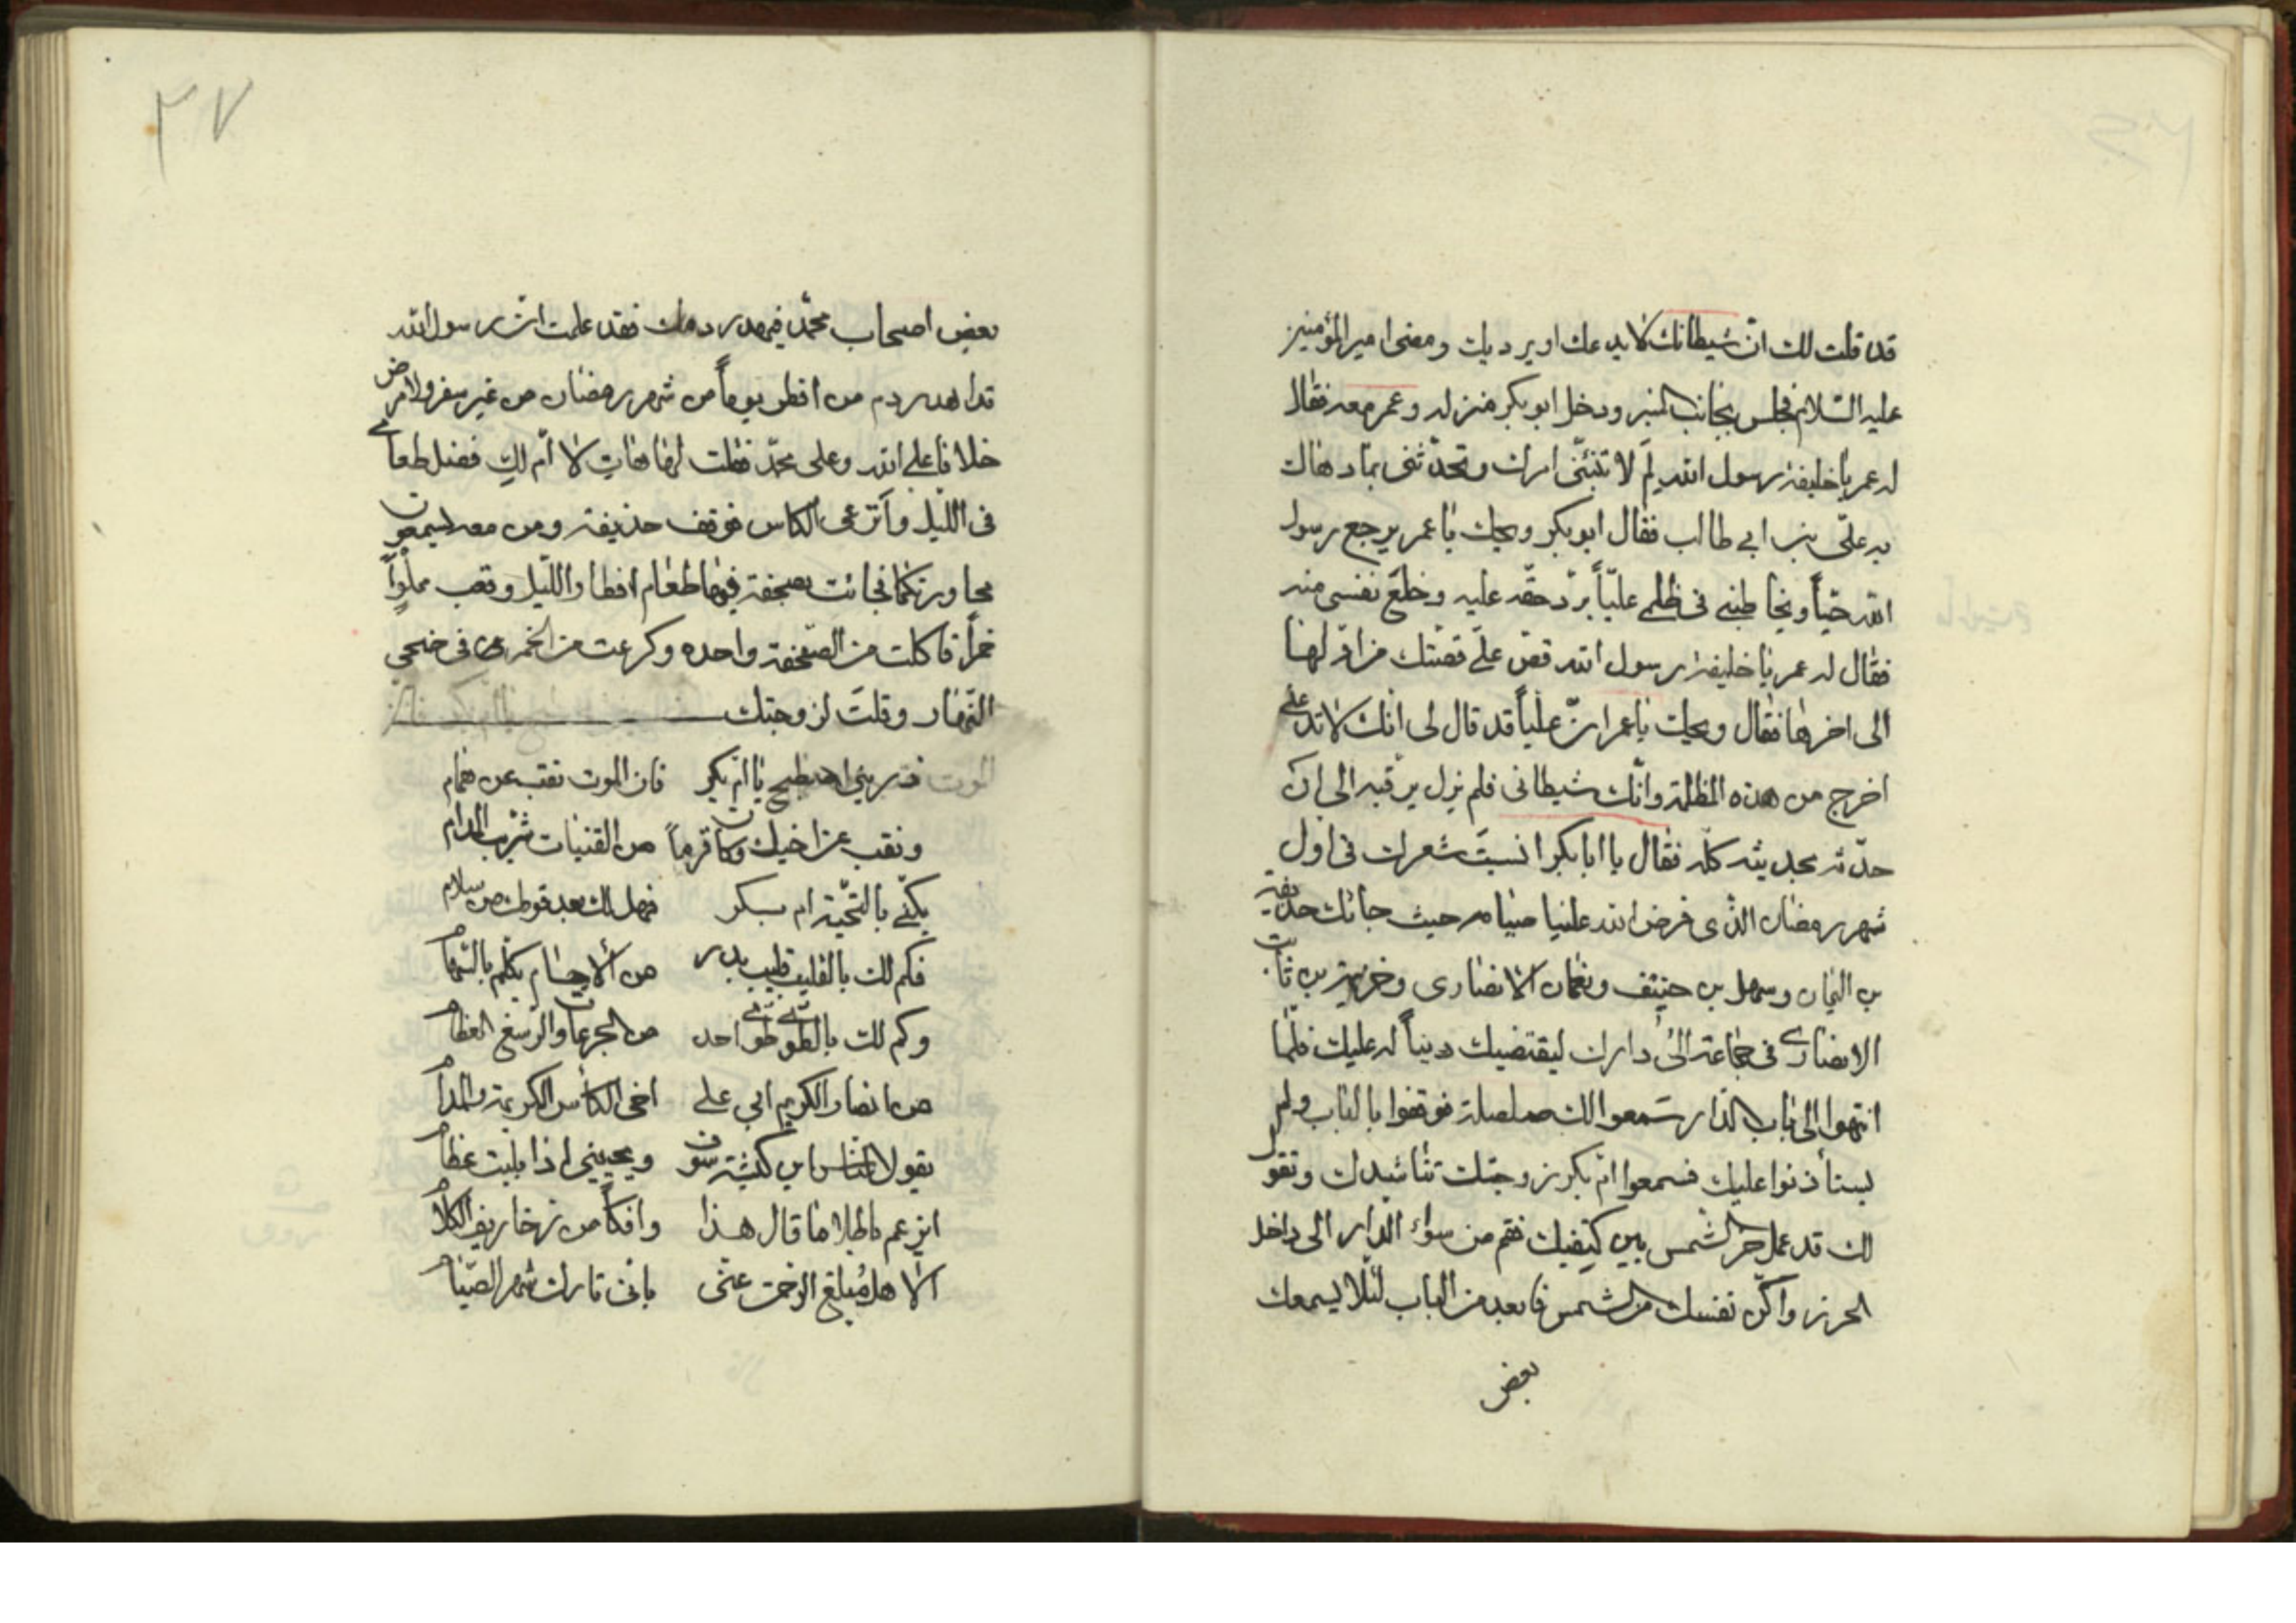 قد قلت لك انّ شيطانك لا يدعك او يرديك ومضى امير المؤمنين
عليه السّلام فجلس بجانب المنبر ودخل ابو بكر منزله وعمر معه فقال
له عمر يا خليفة رسول الله لِمَ لا تنبئنى امرك وتحدّثنى بما دهاك
به علّى بن ابي طالب فقال ابو بكر ويحك يا عمر يرجع رسول
الله حيّاً ويخاطبنى فى ظلمى عليّاً بردّ حقّه عليه وخلع نفسى منه
فقال له عمر يا خليفة رسول الله قصّ علّى قصّتك من اوّلها
الى اخرها فقال ويحك يا عمر انّ عليّاً قد قال لى انك لا تدعنى
اخرج من هذه المظلمة وانّك شيطانى فلم يزل يرقبه الى ان
حدّثه بحديثه كلّه فقال يا ابا بكر انسيتَ شعرك فى اول
شهر رمضان الذّى فرض الله علينا صيامه حيث جائك حذيفة
بن اليمان وسهل بن حنيف ونعمان الانصارى وخزيمة بن ثابت
الانصارى فى جماعة الى دارك ليقتضيك ديناً له عليك فلّما
انتهوا الى باب الدّار سَمعوا لك صلصلة فوقفوا بالباب ولم
يستأذنوا عليك فسمعوا امّ بكر زوجتك تناشدك وتقول
لك قد عمل حرّ الشّمس بين كتفيك فقم من سواء الدار الى داخل
الحرز واكنّ نفسك من الشمس فابعد من الباب لئلّا يسمعك
بعض
٣٧
بعض اصحاب محمّد فيهدر دمك فقد علمت انّ رسول الله
قد اهدر دم من افطر يوماً من شهر رمضان من غير سفر ولا مرض
خلافا على الله وعلى محمّد فقلت لها هاتِ لا امّ لكِ فضل طعامى
فى اللّيل وأترعى الكاس فوقف حذيفة ومن معه ليسمعون
محاورتكما فجائت بصحفة فيها طعام افطار اللّيل وقعب مملوّاً
خمراً فاكلت من الصّحفة واحده وكرعت من الخمر فى ضحى
النّهار وقلتَ لزوجتك
ذرينى اصطبح يا امّ بكر فان الموت نقب عن همام
ونقب عن اخيك وكان قرماً من القنيات شرب المدام
يكنّى بالتحيّة ام بسكر فهل لك بعد قومك من سلام
فكم لك بالقليب قليب بدر من الاجسام يكلّم بالشّهام
وكم لك بالطّوىّ طوىّ احد من الجرعات والرّسغ العظام
من انصار الكريم ابى على اخى الكأس الكريمة والمدام
يقول لنا ابن كبشة سوف ويحيينى اذا بليت عظام
ايزعم باطلا ما قال هذا وافكاً من زخاريف الكلام
الا هل مُبلغ الرحمن عنّى بانى تارك شهر الصّيام